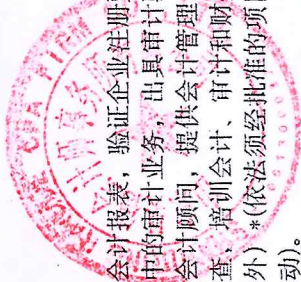 会计报表，验证企业注册
中的审计业务，出具审计
会计顾问，提供会计管理
查，培训会计、审计和财
外）*(依法须经批准的项目
动)。